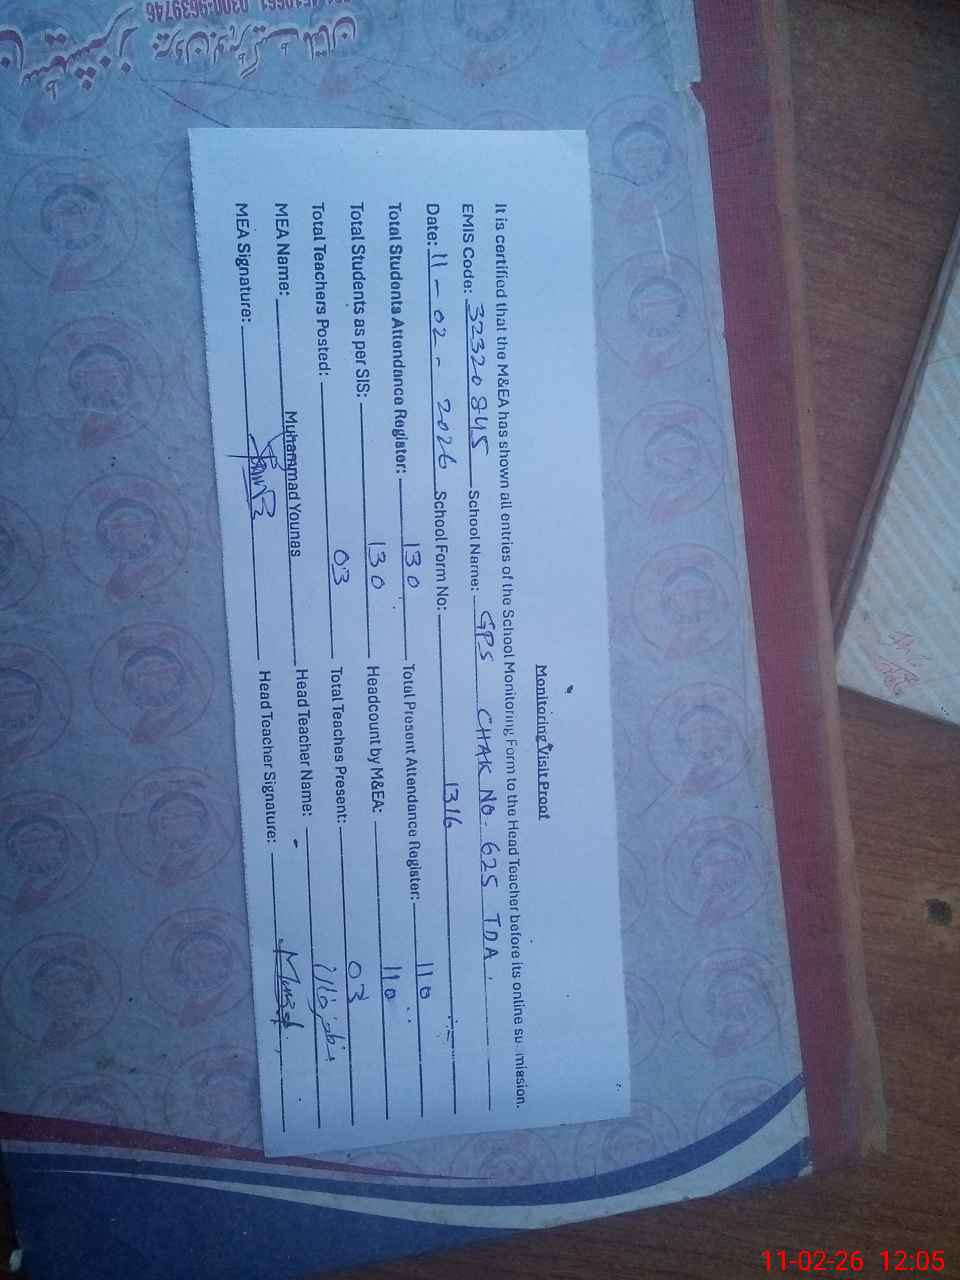 Monitoring Visit Proof
It is certified that the M&EA has shown all entries of the School Monitoring Form to the Head Teacher before its online submission.
EMIS Code: 32320845 School Name: GPS CHAK NO. 625 TDA.
Date: 11-02-2026 School Form No: 1316
Total Students Attendance Register: 130 Total Present Attendance Register: 110
Total Students as per SIS: 130 Headcount by M&EA: 110
Total Teachers Posted: 03 Total Teaches Present: 03
MEA Name: Muhammad Younas Head Teacher Name:
MEA Signature: Head Teacher Signature:
0300-9639746
11-02-26 12:05